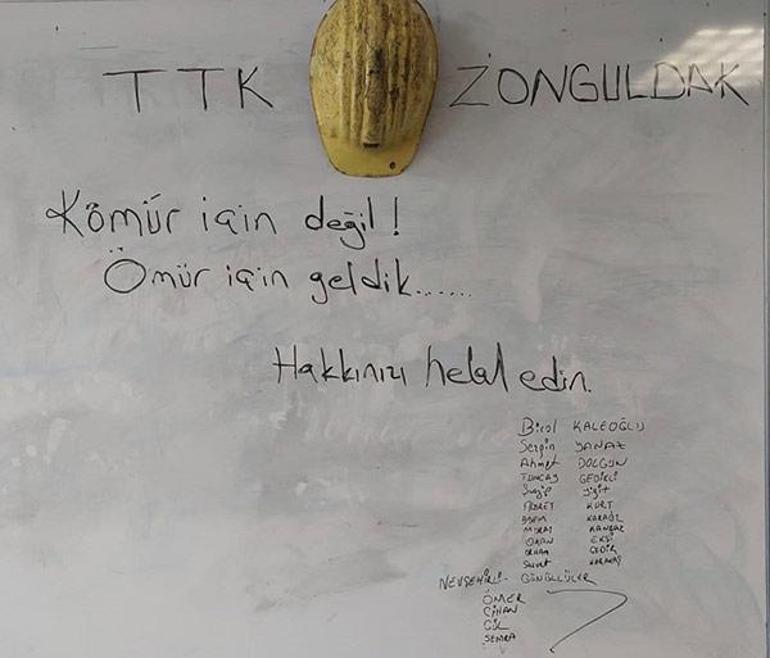 TTK ZONGULDAK
Kömür için değil!
Ömür için geldik.......
Hakkınızı helal edin.
Birol KALEOĞLU
Sezgin YANAZ
Ahmet DOLGUN
TUNCAY GEDİKLİ
yiğit
FİKRET KURT
KARAÖZ
MURAT
OKAN EKŞİ
ORHAN GEDİK
Suat
NEVŞEHİRLİ- GÖNÜLLÜLER
ÖMER
CİHAN
GÜL
SEMRA